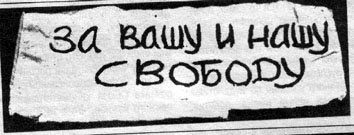 за вашу и нашу
СВОБОДУ